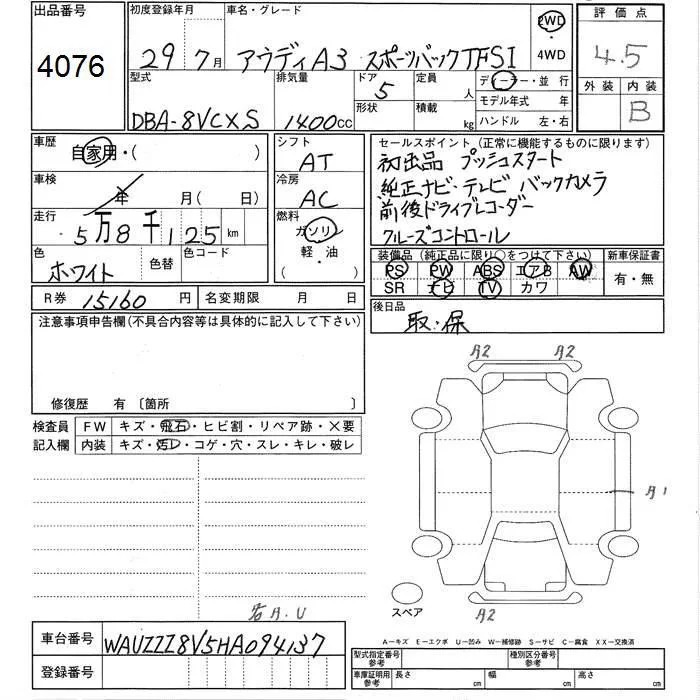 出品番号
4076
初度登録年月
29 7月
車名・グレード
アウディA3 スポーツバックTFSI
2WD
・
4WD
評価点
4.5
外装 内装
B
型式
DBA-8VCXS
排気量
1400cc
ドア
5
形状
定員
人
積載
kg
ディーラー・並行
モデル年式 年
ハンドル 左・右
車歴
自家用・( )
シフト
AT
車検
年 月(日)
冷房
AC
走行
5万8千125km
燃料
ガソリン
軽・油
・
( )
色
ホワイト
色替
色コード
R券 15160 円
名変期限 月 日
セールスポイント(正常に機能するものに限ります)
初出品 プッシュスタート
純正ナビ・テレビ バックカメラ
前後ドライブレコーダー
クルーズコントロール
装備品(純正品に限り○をつけて下さい)
PS PW ABS エアB AW
SR ナビ TV カワ
新車保証書
有・無
後日品
取・保
注意事項申告欄(不具合内容等は具体的に記入して下さい)
修復歴 有〔箇所 〕
検査員
記入欄
FW キズ・飛石・ヒビ割・リペア跡・×要
内装 キズ・汚レ・コゲ・穴・スレ・キレ・破レ
A2 A2
A1
A2
スペア
A.U
A－キズ E－エクボ U－凹み W－補修跡 S－サビ C－腐食 XX－交換済
車台番号 WAUZZZ8V5HA094137
登録番号
型式指定番号
参考
種別区分番号
参考
車庫証明用
参考
長さ cm 幅 cm 高さ cm